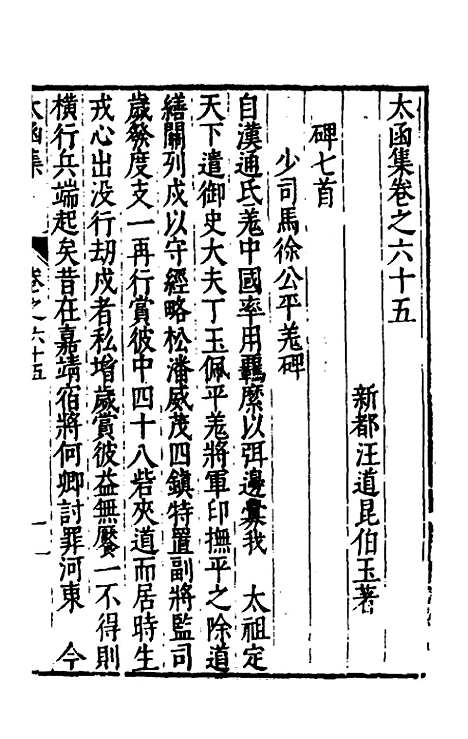 太函集卷之六十五
新都汪道昆伯玉著
碑七首
少司馬徐公平羗碑
自漢通氐羗中國率用羈縻以弭邊釁我　太祖定
天下遣御史大夫丁玉佩平羗將軍印撫平之除道
繕關列戍以守經略松潘威茂四鎮特置副將監司
歲發度支一再行賞彼中四十八砦夾道而居時生
戎心出没行劫戍者私增歲賞彼益無饜一不得則
橫行兵端起矣昔在嘉靖佰將何卿討罪河東　今
太函集
卷之六十五
一